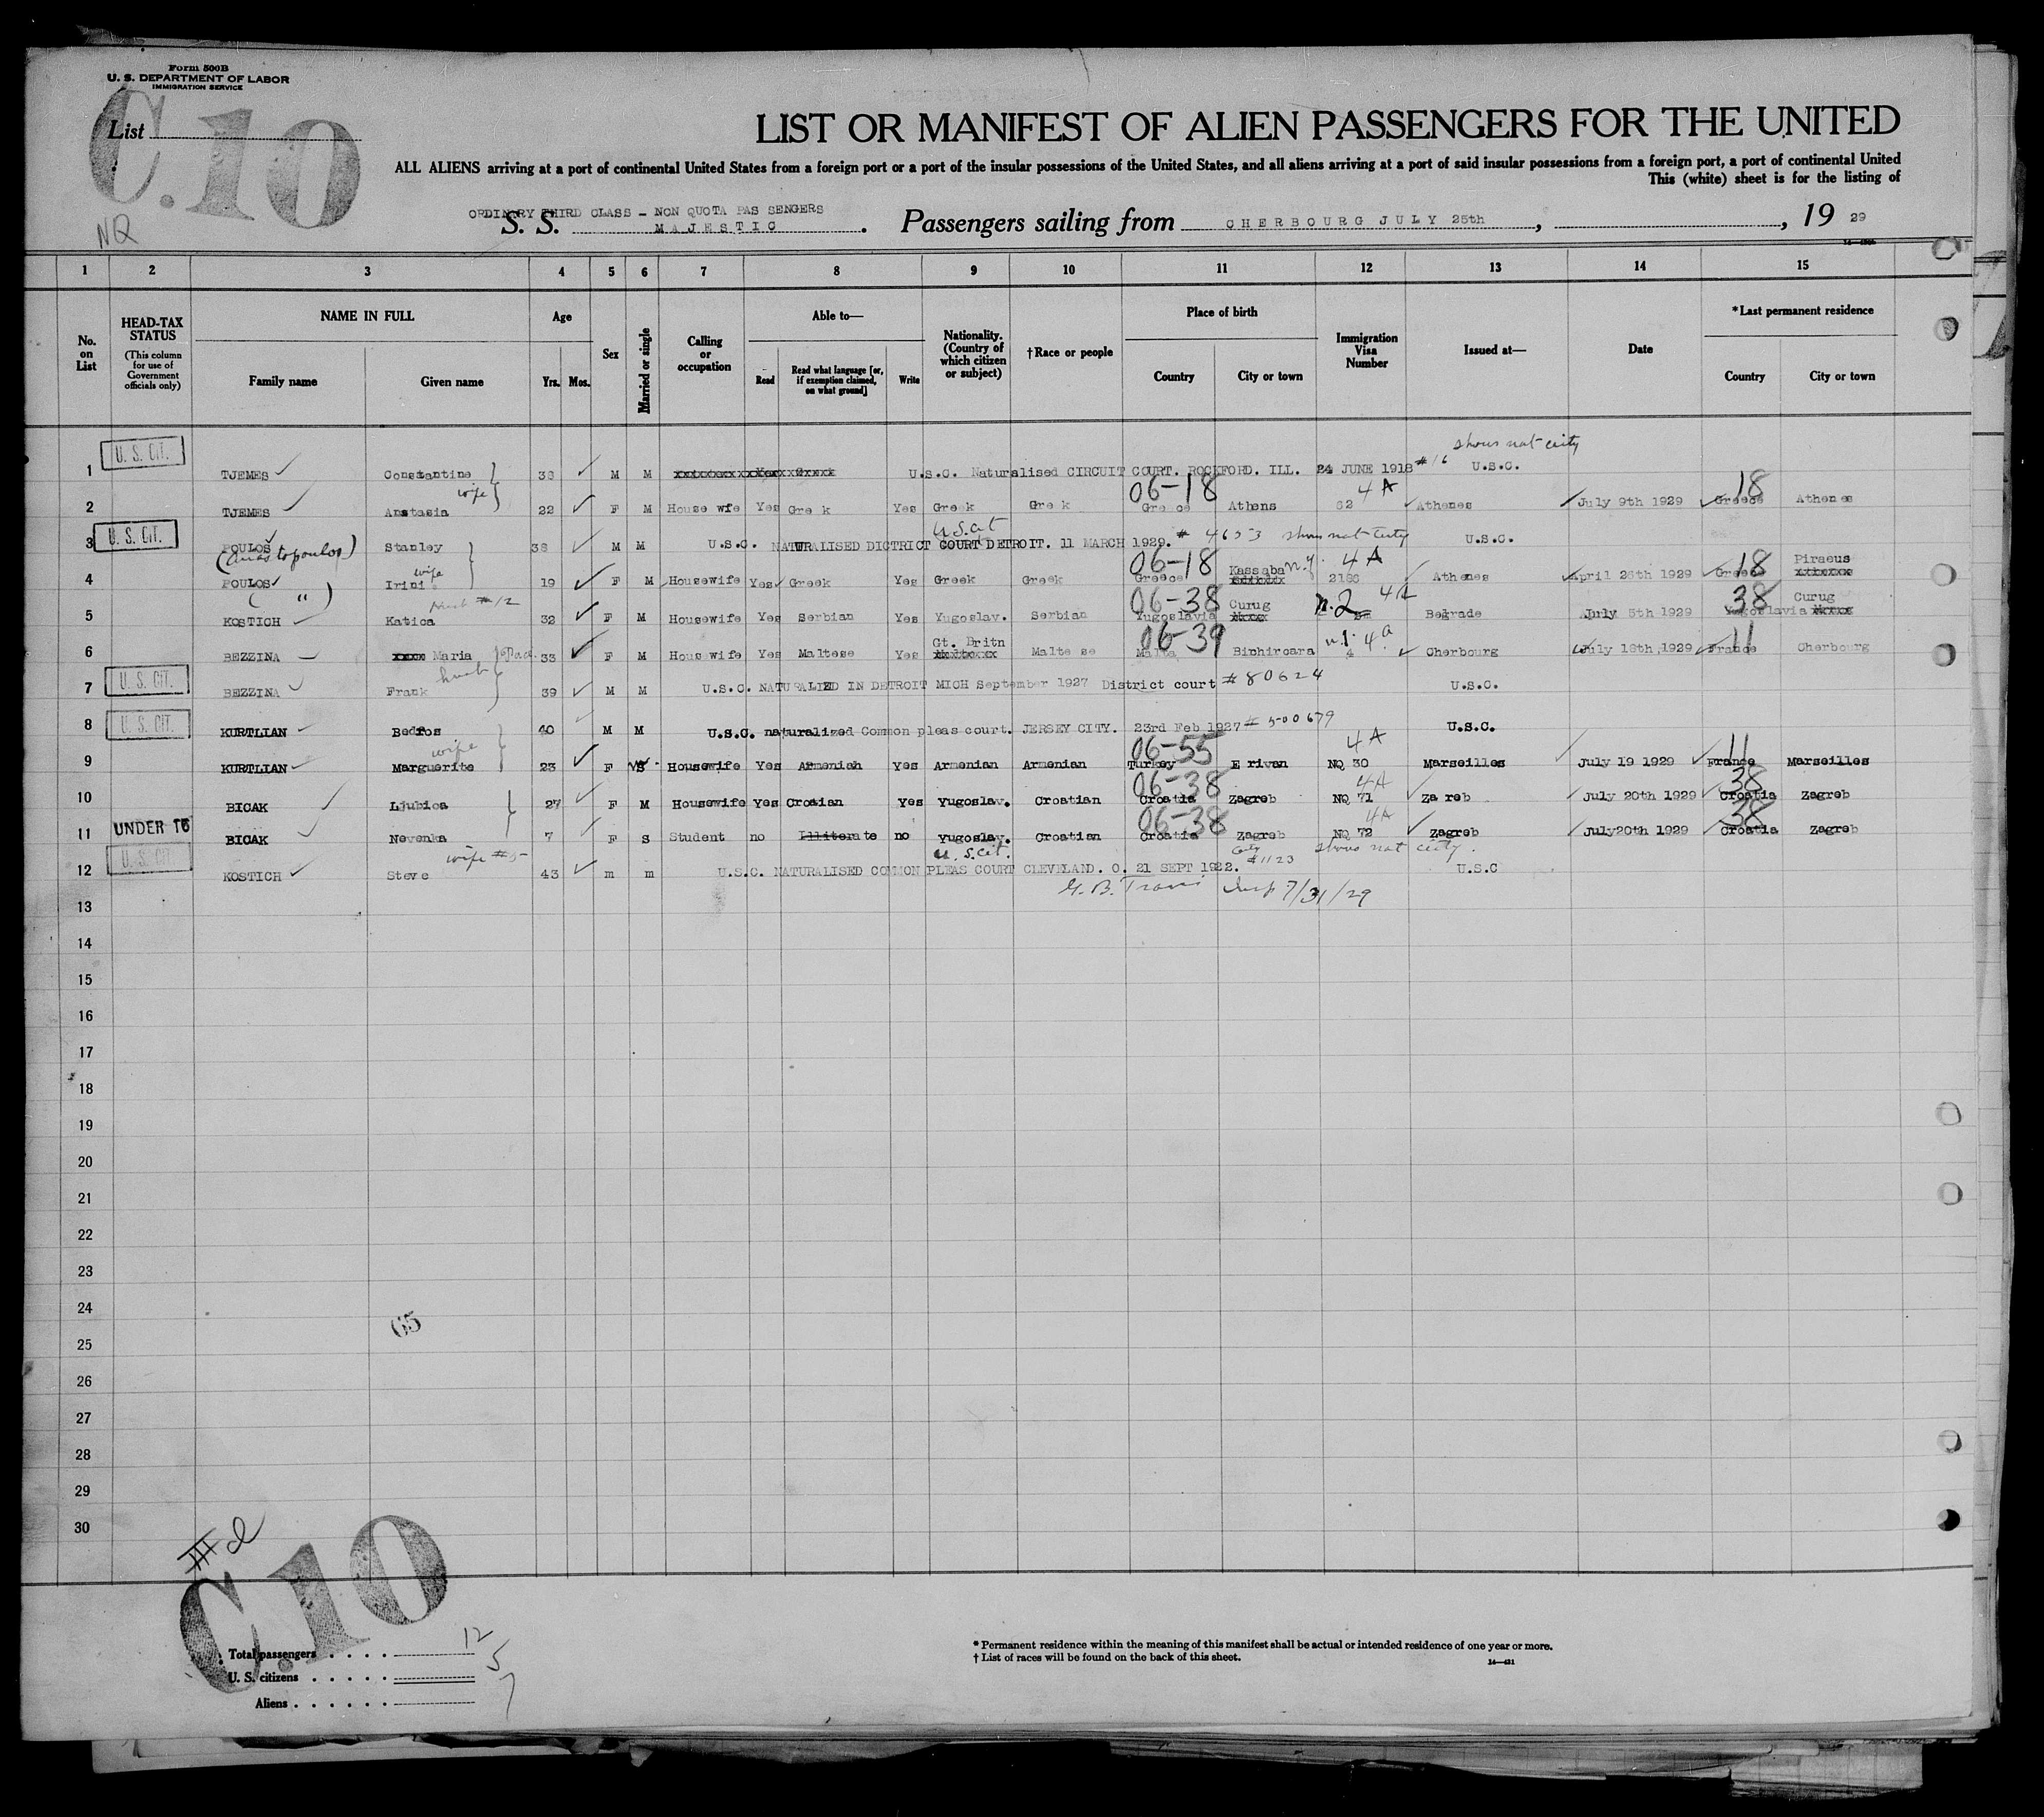 Form 500B
U. S. DEPARTMENT OF LABOR
IMMIGRATION SERVICE
C.10
List
NQ
LIST OR MANIFEST OF ALIEN PASSENGERS FOR THE UNITED
ALL ALIENS arriving at a port of continental United States from a foreign port or a port of the insular possessions of the United States, and all aliens arriving at a port of said insular possessions from a foreign port, a port of continental United
This (white) sheet is for the listing of
ORDINARY THIRD CLASS - NON QUOTA PAS SENGERS
S. S. MAJESTIC. Passengers sailing from CHERBOURG JULY 25th, , 19 29
1 2 3 4 5 6 7 8 9 10 11 12 13 14 15
No. on List
HEAD-TAX STATUS (This column for use of Government officials only)
NAME IN FULL Family name Given name
Age Yrs. Mos.
Sex
Married or single
Calling or occupation
Able to— Read Read what language [or, if exemption claimed, on what ground] Write
Nationality. (Country of which citizen or subject)
†Race or people
Place of birth Country City or town
Immigration Visa Number
Issued at—
Date
*Last permanent residence Country City or town
shows nat city
1 U. S. CIT. TJEMES Constantine 36 M M U.S.C. Naturalised CIRCUIT COURT. ROCKFORD. ILL. 24 JUNE 1918 #16 U.S.C.
wife 06-18 4A 18
2 TJEMES Anstasia 22 F M House wfe Yes Gre k Yes Greek Gre k Greece Athens 62 Athenes July 9th 1929 Greece Athenes
U.S.cit
3 U. S. CIT. POULOS Stanley 38 M M U.S.C. NATURALISED DICTRICT COURT DETROIT. 11 MARCH 1929. # 4653 shows nat city U.S.C.
wife 06-18 Kassaba n.q. 4A 18 Piraeus
4 POULOS Irini 19 F M Housewife Yes Greek Yes Greek Greek Greece 2186 Athenes April 26th 1929 Greece
( " ) Husb #12 06-38 Curug n.2 4A 38 Curug
5 KOSTICH Katica 32 F M Housewife Yes Serbian Yes Yugoslav. Serbian Yugoslavia Belgrade July 5th 1929 Yugoslavia
Gt. Britn 06-39 4a 11
6 BEZZINA Maria 33 F M Hous wife Yes Maltese Yes Malte se Malta Birchircara 4 Cherbourg July 16th, 1929 France Cherbourg
husb
7 U. S. CIT. BEZZINA Frank 39 M M U.S.C. NATURALIZED IN DETROIT MICH September 1927 District court #80624 U.S.C.
8 U. S. CIT. KURTLIAN Bedros 40 M M U.S.C. naturalized Common pleas court. JERSEY CITY. 23rd Feb 1927 # 500679 U.S.C.
wife 06-55 4A 11
9 KURTLIAN Marguerite 23 F S Housewife Yes Armeniah Yes Armenian Armenian Turkey E rivan NQ 30 Marseilles July 19 1929 France Marseilles
06-38 4A 38
10 BICAK Ljubica 27 F M Housewife Yes Croatian Yes Yugoslav. Croatian Croatia Zagreb NQ 71 Za reb July 20th 1929 Croatia Zagreb
06-38 4A 38
11 UNDER 16 BICAK Nevenka 7 F S Student no Illiterate no Yugoslav. Croatian Croatia Zagreb NQ 72 Zagreb July20th 1929 Croatia Zagreb
wife #5 U.S.cit. #1123 shows nat city.
12 U. S. CIT. KOSTICH Steve 43 m m U.S.C. NATURALISED COMMON PLEAS COURT CLEVELAND. O. 21 SEPT 1922. U.S.C
G. B. Travis Insp 7/31/29
13
14
15
16
17
18
19
20
21
22
23
24
65
25
26
27
28
29
30
C.10
Total passengers 12
U. S. citizens 5
Aliens 7
* Permanent residence within the meaning of this manifest shall be actual or intended residence of one year or more.
† List of races will be found on the back of this sheet.